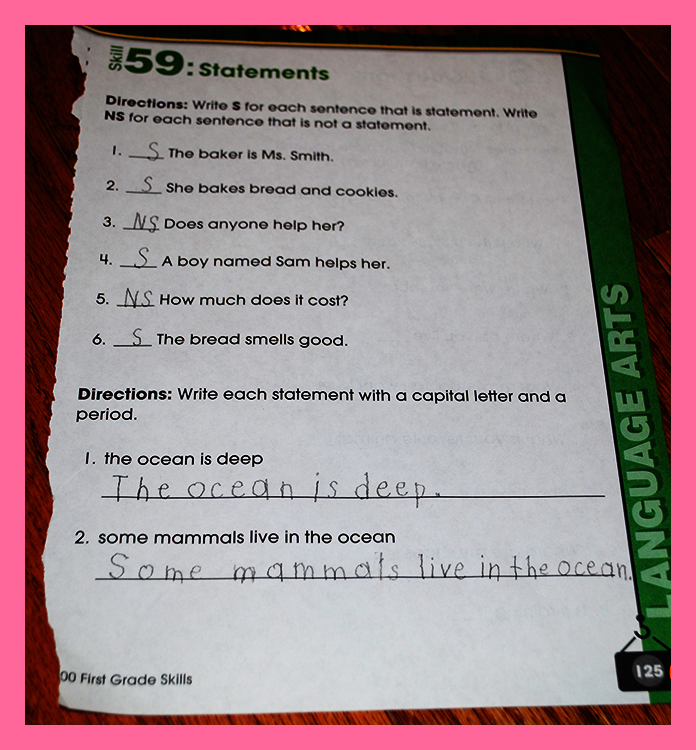 Skill 59: Statements
Directions: Write S for each sentence that is statement. Write
NS for each sentence that is not a statement.
1. S The baker is Ms. Smith.
2. S She bakes bread and cookies.
3. NS Does anyone help her?
4. S A boy named Sam helps her.
5. NS How much does it cost?
6. S The bread smells good.
Directions: Write each statement with a capital letter and a
period.
1. the ocean is deep
The ocean is deep.
2. some mammals live in the ocean
Some mammals live in the ocean.
LANGUAGE ARTS
00 First Grade Skills
125